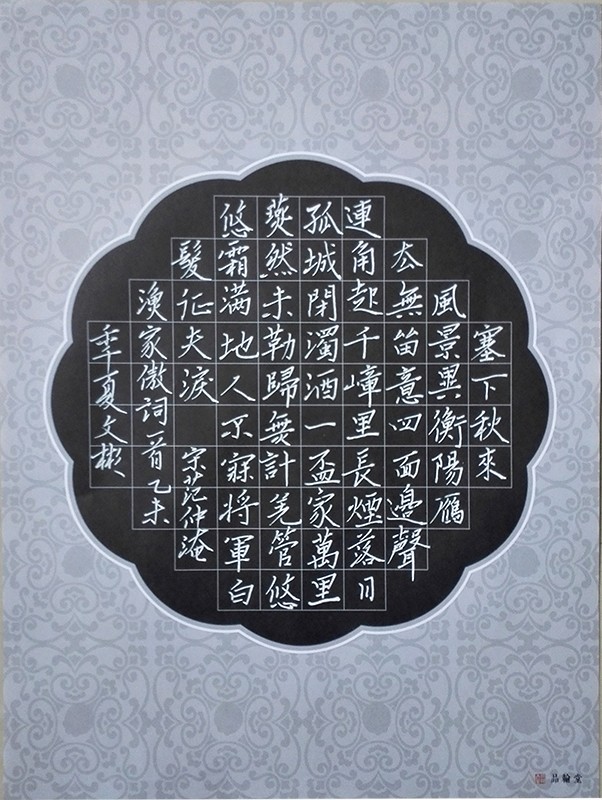 塞下秋來
風景異衡陽鴈
去無留意四面邊聲
連角起千嶂里長煙落日
孤城閉濁酒一盃家萬里
燕然未勒歸無計羌管悠
悠霜滿地人不寐將軍白
髮征夫淚 宋范仲淹
漁家傲詞一首乙未
季夏文彬
品翰堂